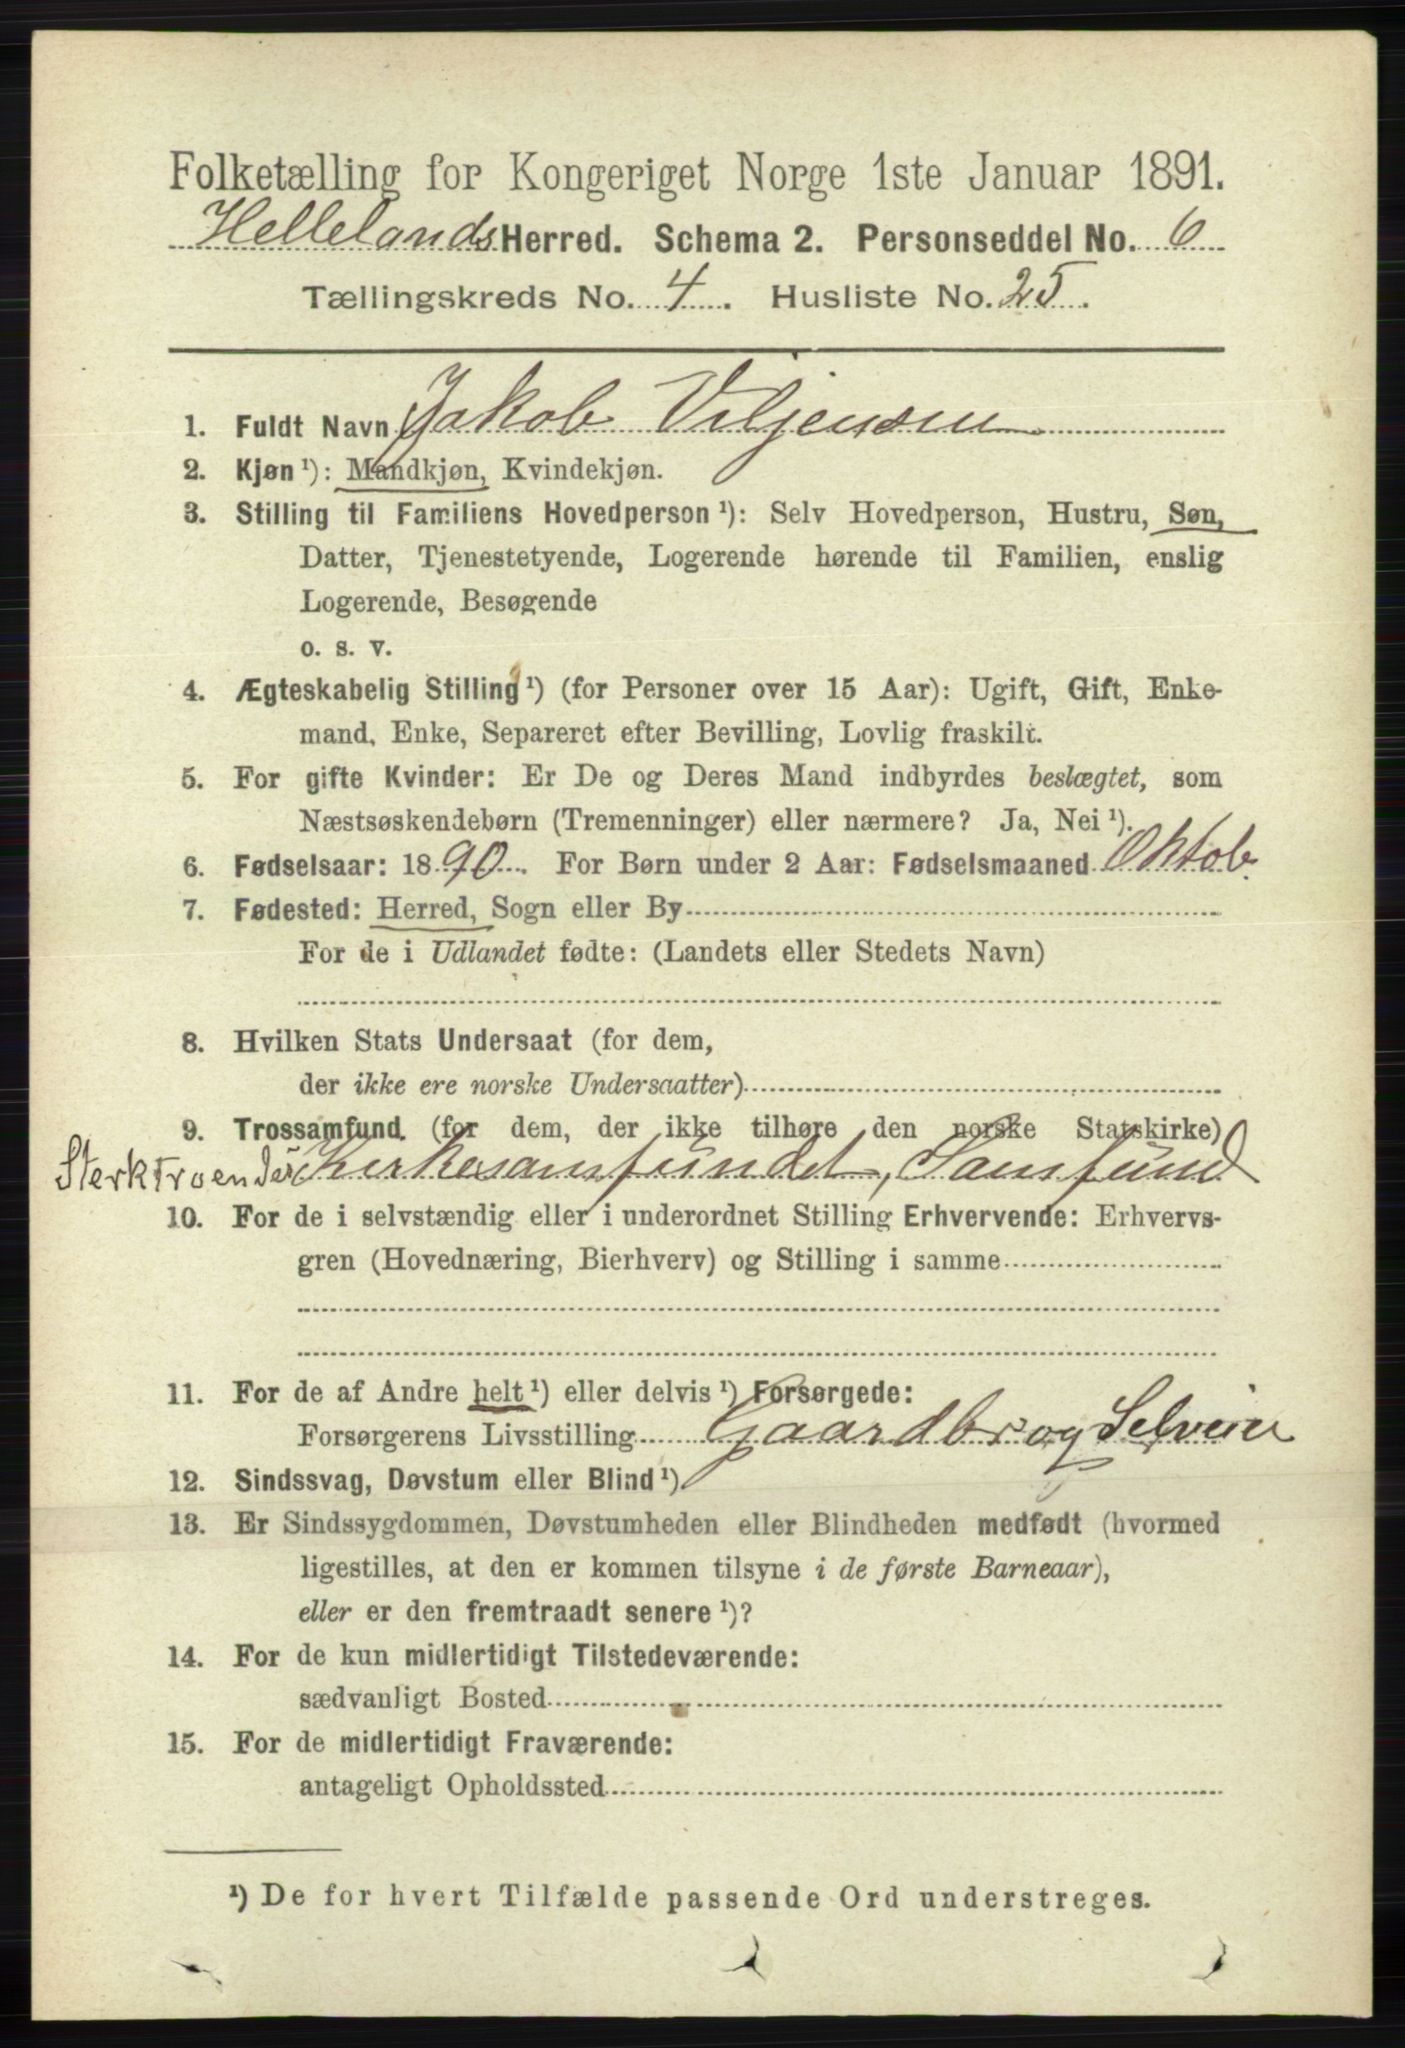 Folketælling for Kongeriget Norge 1ste Januar 1891.
Hellelands Herred. Schema 2. Personseddel No. 6
Tællingskreds No. 4. Husliste No. 25.
1. Fuldt Navn Jakob Viljensen
2. Kjøn ¹): Mandkjøn, Kvindekjøn.
3. Stilling til Familiens Hovedperson ¹): Selv Hovedperson, Hustru, Søn,
Datter, Tjenestetyende, Logerende hørende til Familien, enslig
Logerende, Besøgende
o. s. v.
4. Ægteskabelig Stilling ¹) (for Personer over 15 Aar): Ugift, Gift, Enke-
mand, Enke, Separeret efter Bevilling, Lovlig fraskilt.
5. For gifte Kvinder: Er De og Deres Mand indbyrdes beslægtet, som
Næstsøskendebørn (Tremenninger) eller nærmere? Ja, Nei ¹).
6. Fødselsaar: 1890. For Børn under 2 Aar: Fødselsmaaned Oktob.
7. Fødested: Herred, Sogn eller By
For de i Udlandet fødte: (Landets eller Stedets Navn)
8. Hvilken Stats Undersaat (for dem,
der ikke ere norske Undersaatter)
9. Trossamfund. (for dem, der ikke tilhøre den norske Statskirke)
Sterktroendes Kirkesamfundet, Samfund
10. For de i selvstændig eller i underordnet Stilling Erhvervende: Erhvervs-
gren (Hovednæring, Bierhverv) og Stilling i samme
11. For de af Andre helt ¹) eller delvis ¹) Forsørgede:
Forsørgerens Livsstilling Gaardbr og Selveier
12. Sindssvag, Døvstum eller Blind ¹)
13. Er Sindssygdommen, Døvstumheden eller Blindheden medfødt (hvormed
ligestilles, at den er kommen tilsyne i de første Barneaar),
eller er den fremtraadt senere ¹)?
14. For de kun midlertidigt Tilstedeværende:
sædvanligt Bosted
15. For de midlertidigt Fraværende:
antageligt Opholdssted
¹) De for hvert Tilfælde passende Ord understreges.